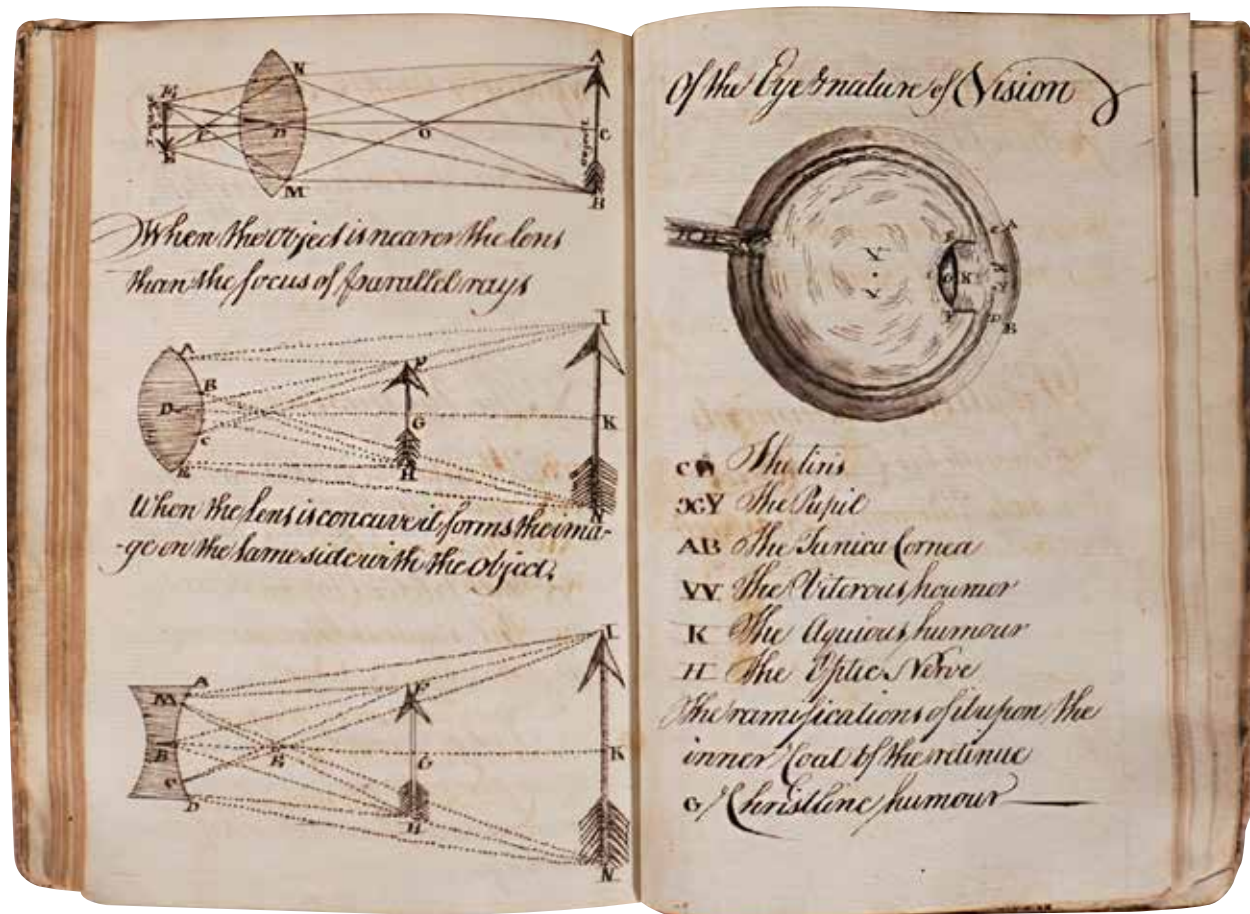 N
A
E
F
D
O
C
Object
E
M
B
When the Object is nearer the lens
than the focus of parallel rays
A
I
B
F
D
G
K
C
H
E
N
When the Lens is concave it forms the ima-
-ge on the same side with the Object.
A
I
M
F
B
E
G
K
C
D
H
N
Of the Eye & nature of Vision
A
E
C
V
G
K
V
F
D
B
The Iris
XY The Pupil
AB The Tunica Cornea
VV The Viterous houmor
K The Aquious humour
H The Optic Nerve
The ramifications of it upon the
inner Coat of the retinue
G Christline humour